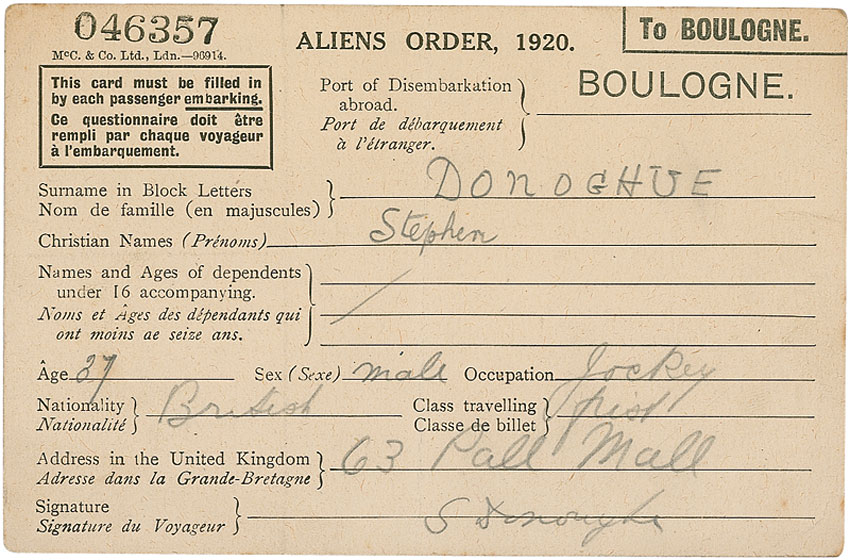 046357
McC. & Co. Ltd., Ldn.—96914.
ALIENS ORDER, 1920.
To BOULOGNE.
This card must be filled in
by each passenger embarking.
Ce questionnaire doit être
rempli par chaque voyageur
à l'embarquement.
Port of Disembarkation
abroad.
Port de débarquement
à l'étranger.
BOULOGNE.
Surname in Block Letters
Nom de famille (en majuscules)
DONOGHUE
Christian Names (Prénoms) Stephen
Names and Ages of dependents
under 16 accompanying.
Noms et Âges des dépendants qui
ont moins ae seize ans.
Âge 37 Sex (Sexe) male Occupation Jockey
Nationality
Nationalité
British
Class travelling
Classe de billet
first
Address in the United Kingdom
Adresse dans la Grande-Bretagne
63 Pall Mall
Signature
Signature du Voyageur
S Donoughue